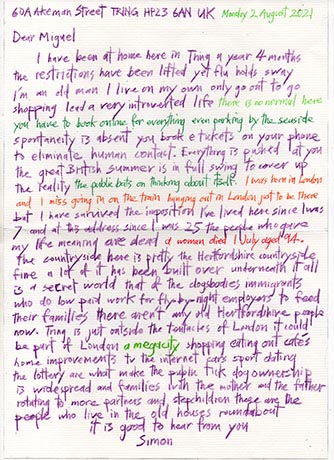 60A Akeman Street TRING HP23 6AN UK Monday 2 August 2021
Dear Miguel
I have been at home here in Tring a year 4 months
the restrictions have been lifted yet flu holds sway
I'm an old man I live on my own only go out to go
shopping lead a very introverted life there is no normal here
you have to book online for everything even parking by the seaside
spontaneity is absent you book etickets on your phone
to eliminate human contact. Everything is pushed at you
the great British summer is in full swing to cover up
the reality the public bits on thinking about itself. I was born in London
and I miss going in on the train hanging out in London just to be there
but I have survived the imposition I've lived here since I was
7 and at this address since I was 25 the people who gave
my life meaning are dead a women died 1 July aged 94.
The countryside here is pretty the Hertfordshire countryside
fine a lot of it has been built over underneath it all
is a secret world that of the dogsbodies immigrants
who do low paid work for fly-by-night employers to feed
their families there aren't any old Hertfordshire people
now. Tring is just outside the tentacles of London it could
be part of London a megacity shopping eating out cafes
home improvements tv the internet cars sport dating
the lottery are what make the public tick dog ownership
is widespread and families with the mother and the father
rotating to more partners and stepchildren these are the
people who live in the old houses roundabout
it is good to hear from you
Simon